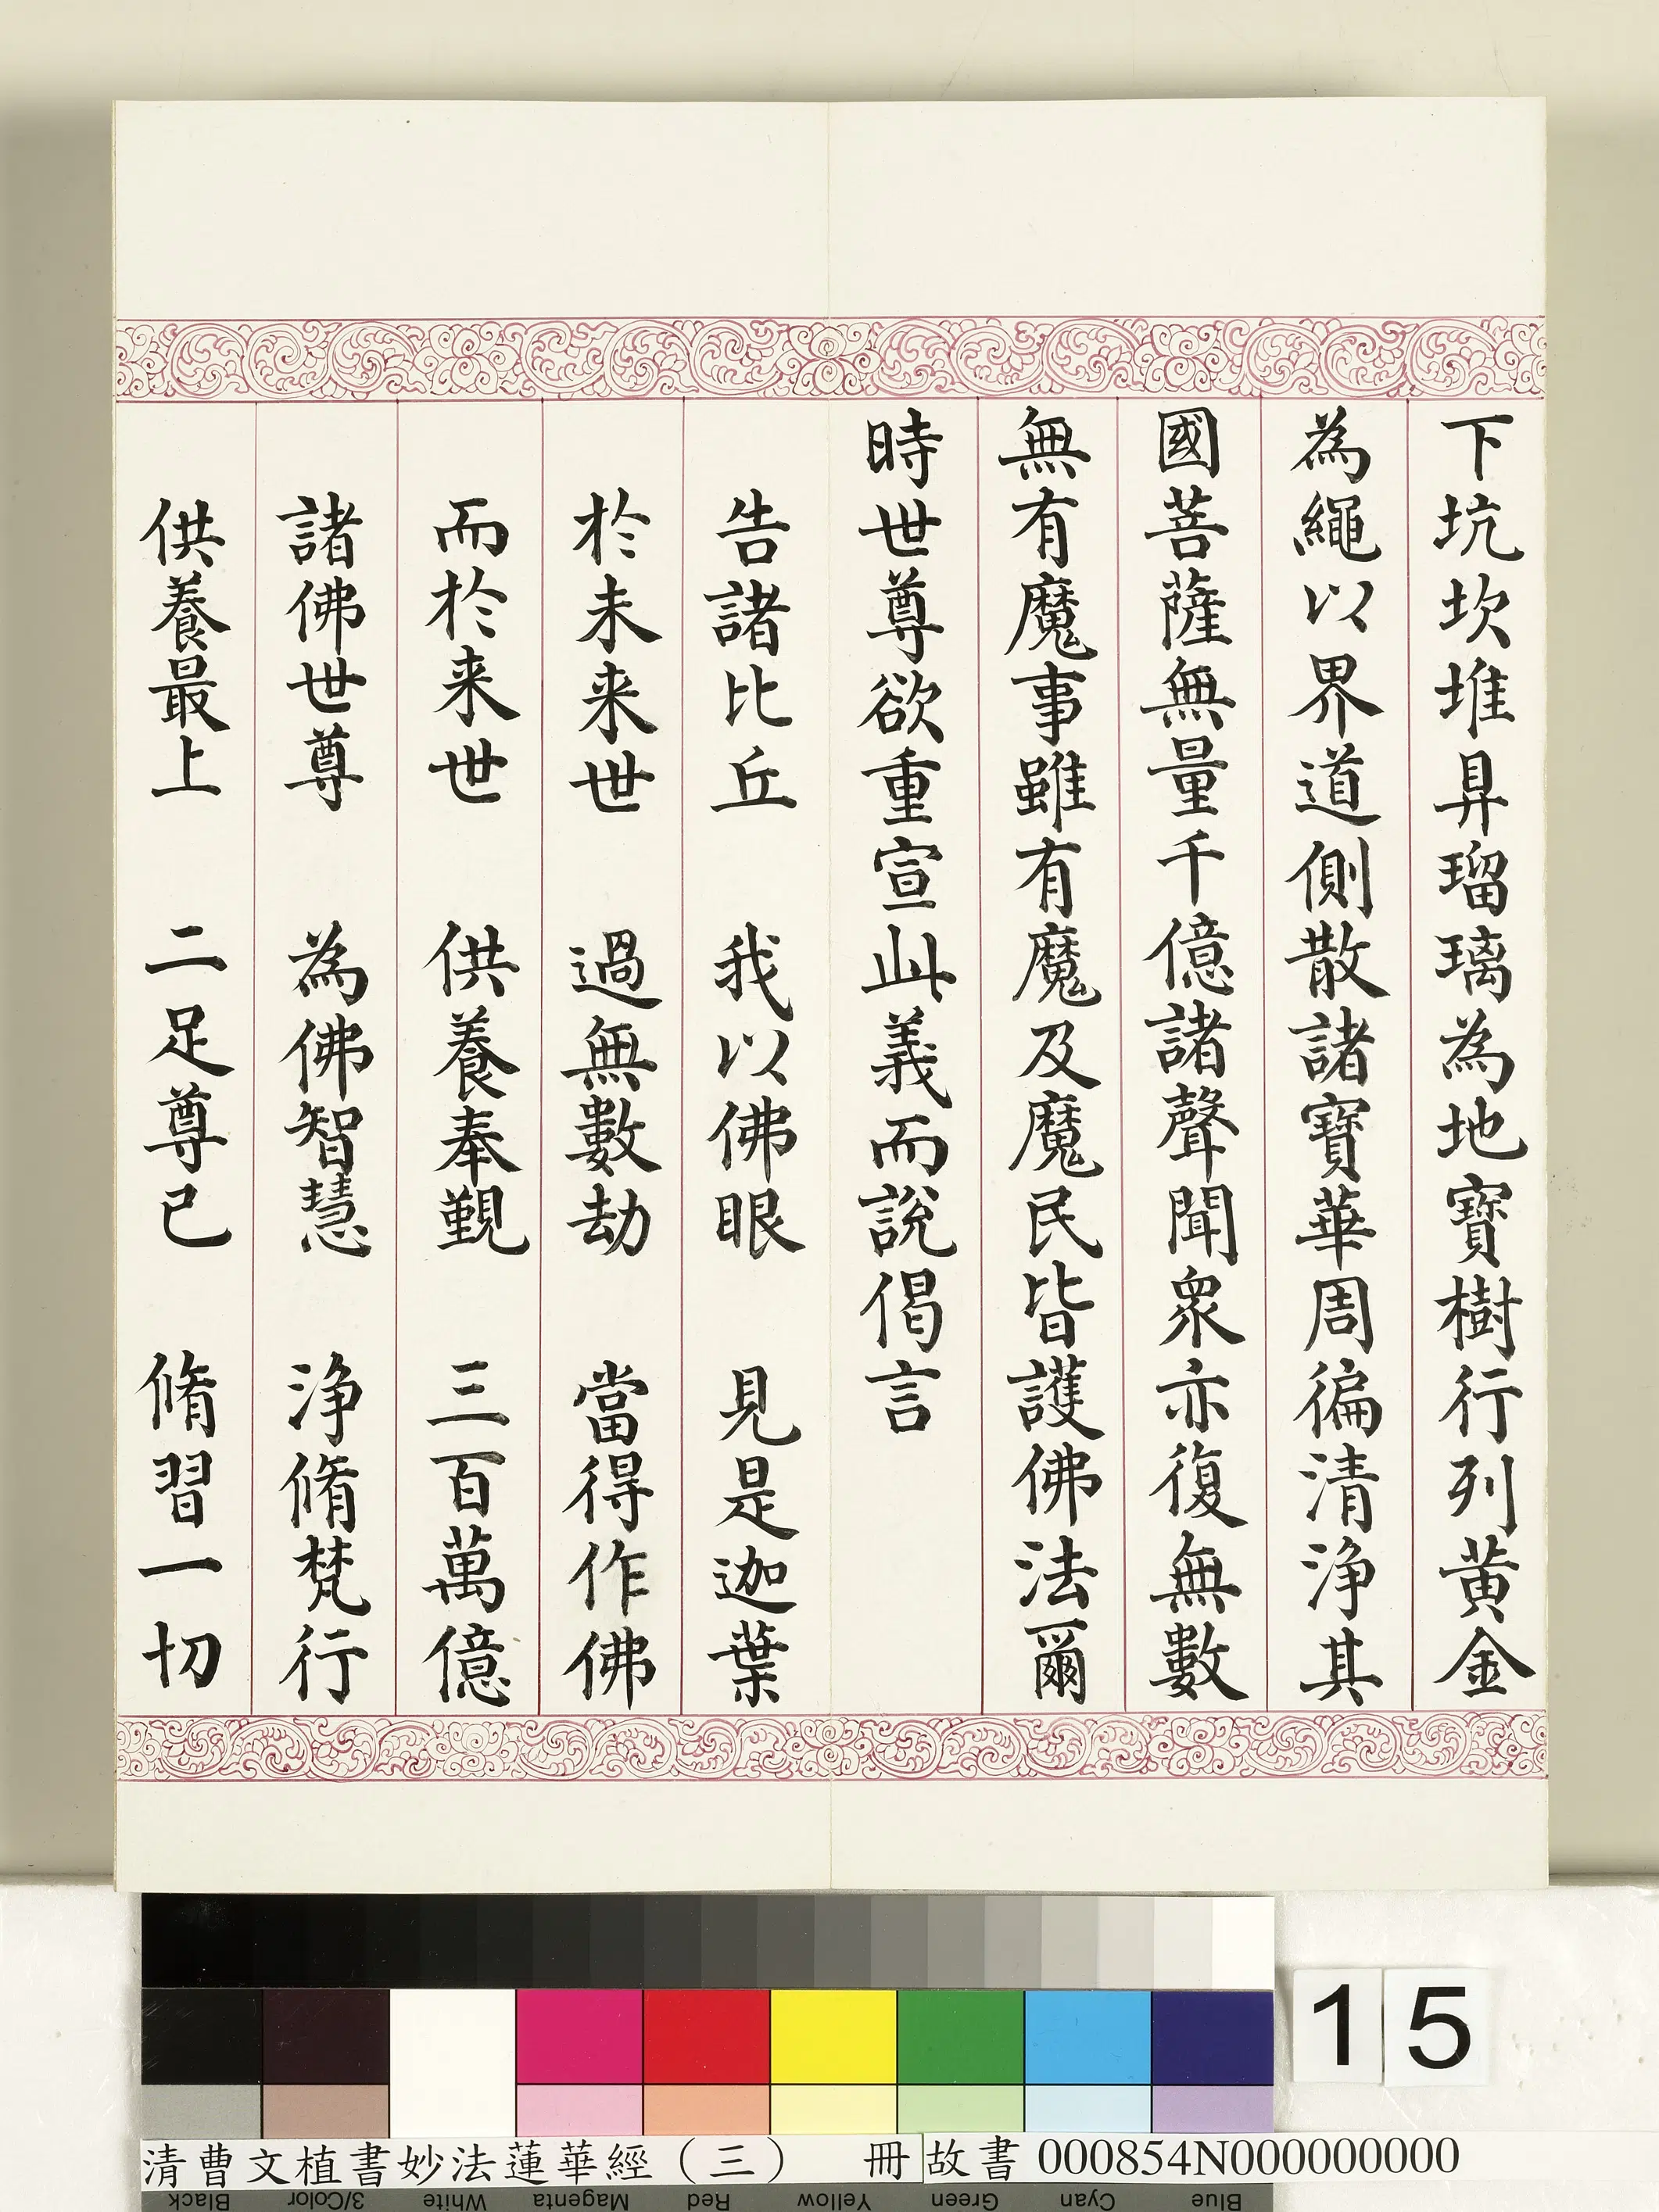 下坑坎堆昇瑠璃為地寶樹行列黃金
為繩以界道側散諸寶華周徧清淨其
國菩薩無量千億諸聲聞衆亦復無數
無有魔事雖有魔及魔民皆護佛法爾
時世尊欲重宣此義而說偈言
告諸比丘　我以佛眼　見是迦葉
於未来世　過無數劫　當得作佛
而於来世　供養奉覲　三百萬億
諸佛世尊　為佛智慧　淨脩梵行
供養最上　二足尊已　脩習一切
15
清曹文植書妙法蓮華經（三）　冊
故書 000854N000000000
Black 3/Color White Magenta Red Yellow Green Cyan Blue